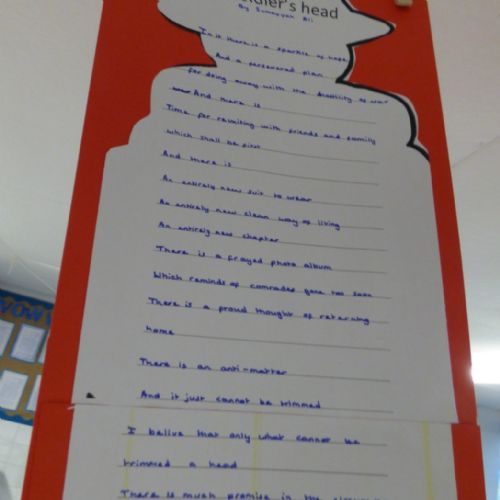 dier's head
By Summayah Ali
In it there is a sparkle of hope
And a persevered plan
for doing away with the hostility of war
And there is
Time for reuniting with friends and family
which shall be first
And there is
An entirely new suit to wear
An entirely new clean way of living
An entirely new chapter
There is a frayed photo album
Which reminds of comrades gone too soon
There is a proud thought of returning
home
There is an anti-matter
And it just cannot be trimmed
I belive that only what cannot be
trimmed a head
There is much promise in the
WOW